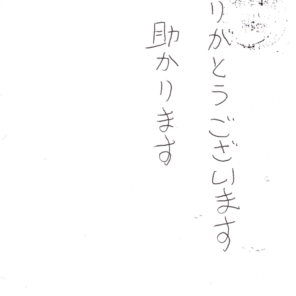 りがとうございます
助かります